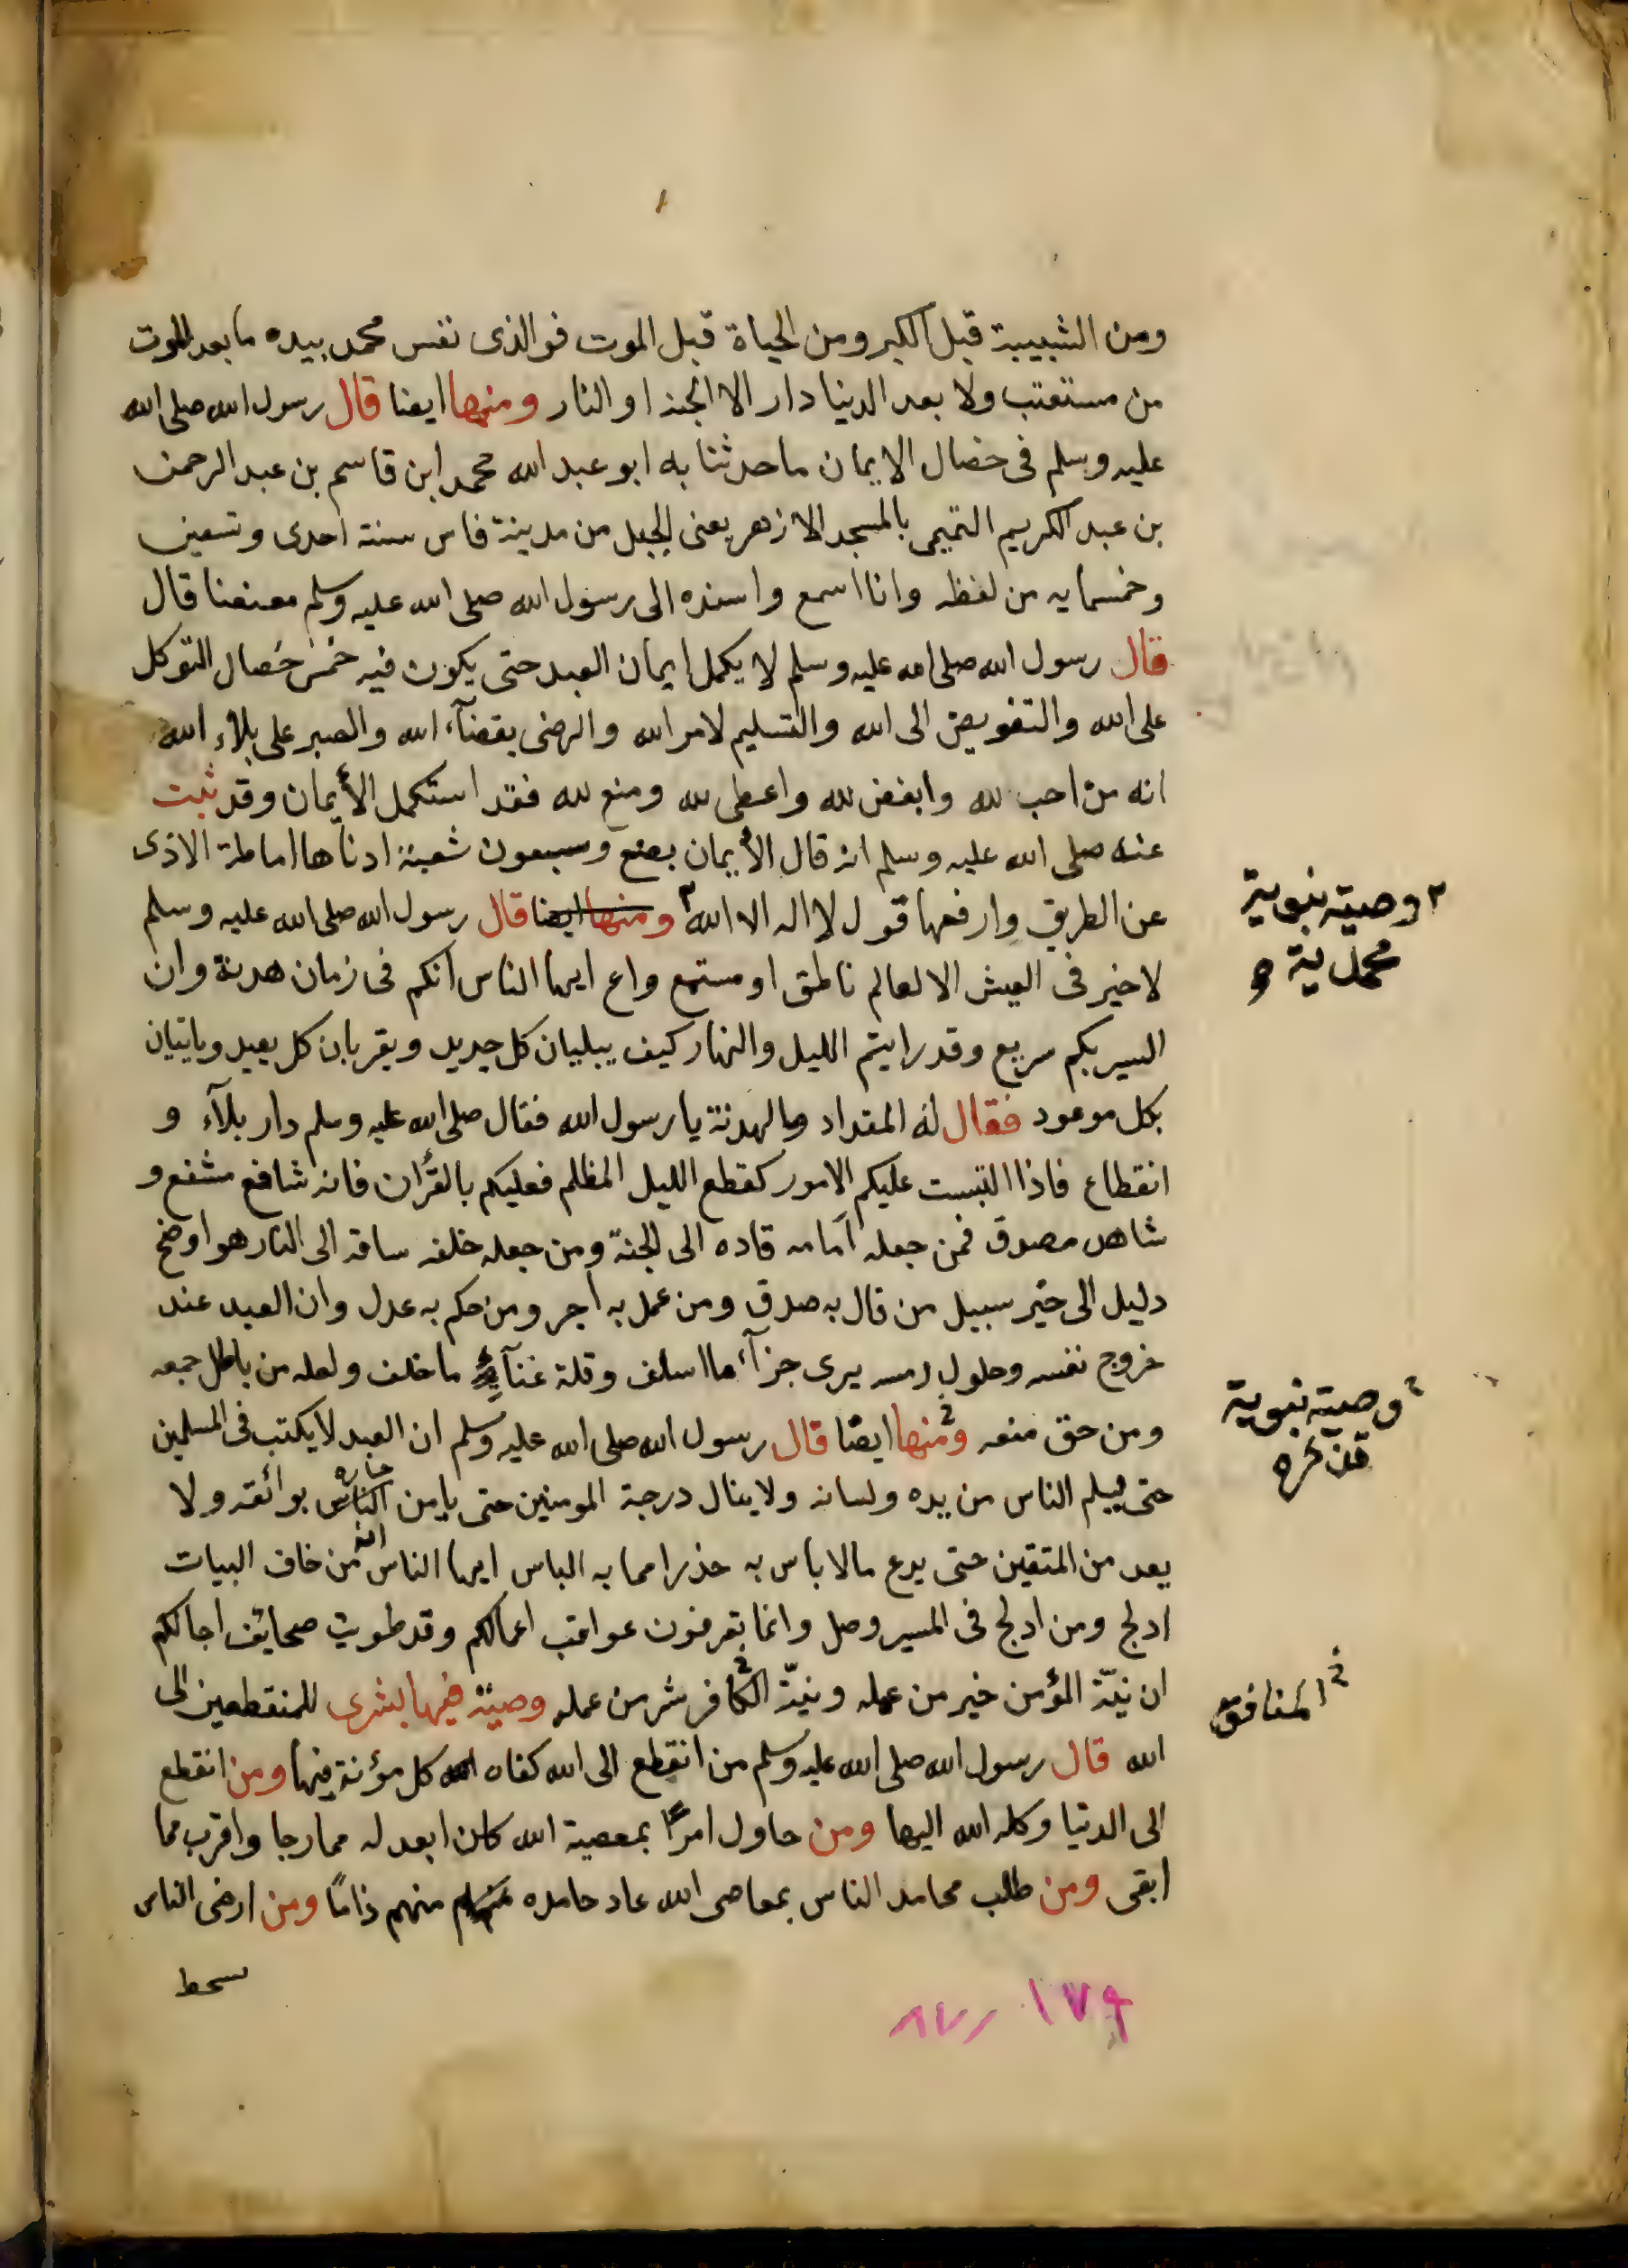 ومن الشبيبة قبل الكبر ومن الحياة قبل الموت فوالذى نفس محمد بيده ما بعد الموت
من مستعتب ولا بعد الدنيا دار الا الجنة او النار ومنها ايضا قال رسول الله صلى الله
عليه وسلم فى خصال الايمان ما حدثنا به ابو عبد الله محمد ابن قاسم بن عبد الرحمن
بن عبد الكريم التميمى بالمسجد الازهر بعنى الجبل من مدينة فاس سنة احدى وتسعين
وخمسمايه من لفظه وانا اسمع واسنده الى رسول الله صلى الله عليه وسلم معنعنا قال
قال رسول الله صلى الله عليه وسلم لا يكمل ايمان العبد حتى يكون فيه خمس خصال التوكل
على الله والتفويض الى الله والتسليم لامر الله والرضى بقضآء الله والصبر على بلاء الله
انه من احب لله وابغض لله واعطى لله ومنع لله فقد استكمل الأيمان وقد ثبت
عنه صلى الله عليه وسلم انه قال الأيمان بضع وسبعون شعبة ادناها اماطة الاذى
عن الطريق وارفعها قول لا اله الا الله ٢ ومنها ايضا قال رسول الله صلى الله عليه وسلم
٢ وصية نبوية
محمدية
لا خير فى العيش الا لعالم ناطق او مستمع واع ايها الناس انكم فى زمان هدنة وان
السير بكم سريع وقد رايتم الليل والنهار كيف يبليان كل جديد ويقربان كل بعيد وياتيان
بكل موعود فقال له المقداد وما الهدنة يا رسول الله فقال صلى الله عليه وسلم دار بلآء و
انقطاع فاذا التبست عليكم الامور كقطع الليل المظلم فعليكم بالقرأن فانه شافع مشفع و
شاهد مصدق فمن جعله امامه قاده الى الجنة ومن جعله خلفه ساقه الى النار هو اوضح
دليل الى خير سبيل من قال به صدق ومن عمل به اجر ومن حكم به عدل وان العبد عند
خروج نفسه وحلول رمسه يرى جزآء ما اسلف وقلة غنآء ما خلف ولعله من باطل جمعه
ومن حق منعه ومنها ايضا قال رسول الله صلى الله عليه وسلم ان العبد لا يكتب فى المسلمين
وصية نبوية
حتى يسلم الناس من يده ولسانه ولا ينال درجة المومنين حتى يامن الناس جاره بوائقه ولا
يعد من المتقين حتى يدع مالا باس به حذرا مما به الباس ايها الناس انه من خاف البيات
ادلج ومن ادلج فى المسير وصل وانما تعرفون عواقب اعمالكم وقد طويت صحايف اجالكم
ان نيّة المؤمن خير من عمله ونيّة الكافر شر من عمله وصية فيها بشرى للمنقطعين الى
المنافق
الله قال رسول الله صلى الله عليه وسلم من انقطع الى الله كفاه الله كل مؤنة فيها ومن انقطع
الى الدنيا وكله الله اليها ومن حاول امرًا بمعصية الله كان ابعد له مما رجا واقرب مما
ابقى ومن طلب محامد الناس بمعاصى الله عاد حامده منهم ذامًا ومن ارضى الناس
سخط
١٧٩